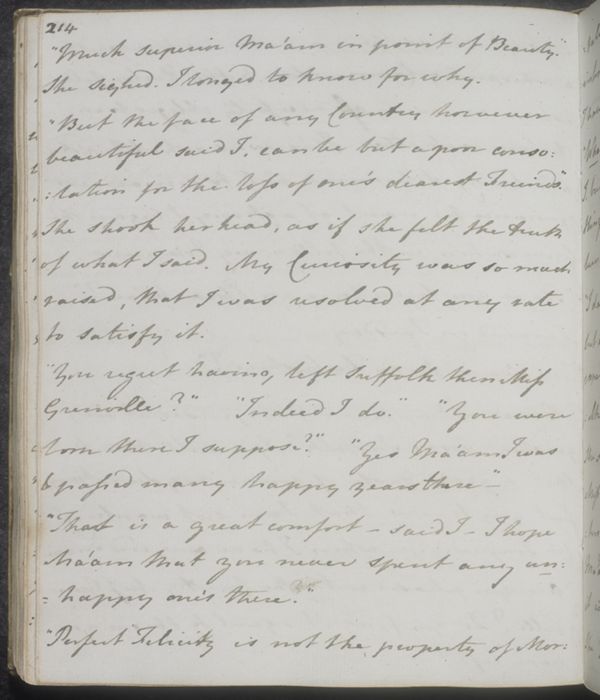 214
"Much superior Ma'am in point of Beauty."
She sighed. I longed to know for why.
"But the face of any Country however
beautiful said I, can be but a poor conso:
:lation for the loss of one's dearest Freinds".
She shook her head, as if she felt the truth
of what I said. My Curiosity was so much
raised, that I was resolved at any rate
to satisfy it.
"You regret having left Suffolk then Miss
Grenville?" "Indeed I do." "You were
born there I suppose?" "Yes Ma'am I was
& passed many happy years there"—
"That is a great comfort— said I— I hope
Ma'am that you never spent any un:
:happy one's there."
"Perfect Felicity is not the property of Mor: